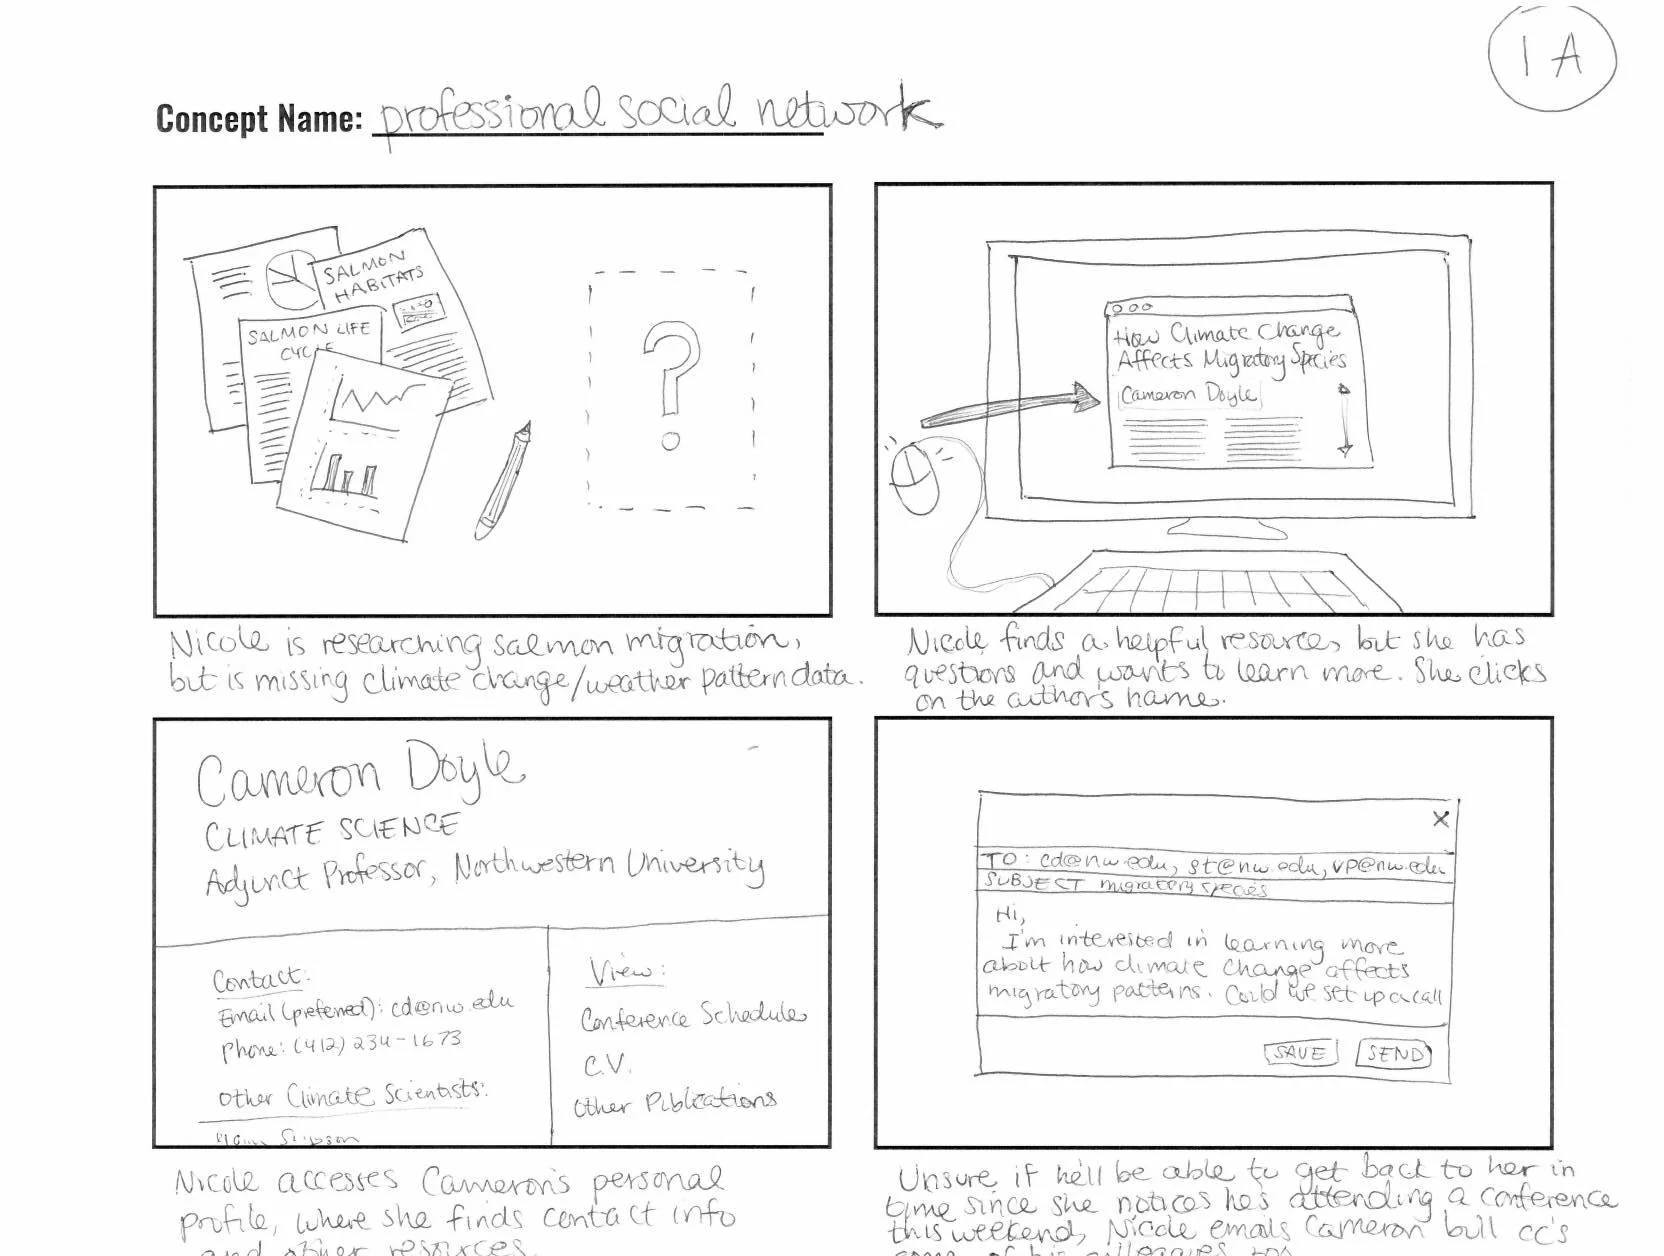 1A
Concept Name: professional social network
SALMON
HABITATS
SALMON LIFE
CYCLE
?
How Climate Change
Affects Migratory Species
Cameron Doyle
Nicole is researching salmon migration,
but is missing climate change/weather pattern data.
Nicole finds a helpful resource, but she has
questions and wants to learn more. She clicks
on the author's name.
Cameron Doyle
CLIMATE SCIENCE
Adjunct Professor, Northwestern University
Contact:
Email (preferred): cd@nw.edu
Phone: (412) 234-1673
Other Climate Scientists:
View:
Conference Schedule
C.V.
Other Publications
X
TO: cd@nw.edu, st@nw.edu, vp@nw.edu
SUBJECT migratory species
Hi,
I'm interested in learning more
about how climate change affects
migratory patterns. Could we set up a call
SAVE SEND
Nicole accesses Cameron's personal
profile, where she finds contact info
and other resources.
Unsure if he'll be able to get back to her in
time since she notices he's attending a conference
this weekend, Nicole emails Cameron but cc's
some of his colleagues too.